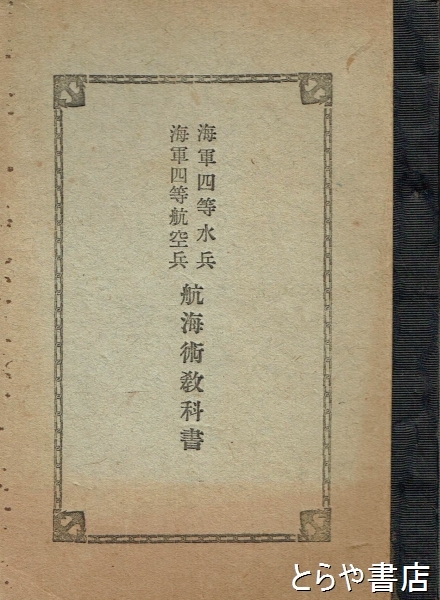 海軍四等水兵
海軍四等航空兵
航海術教科書
とらや書店